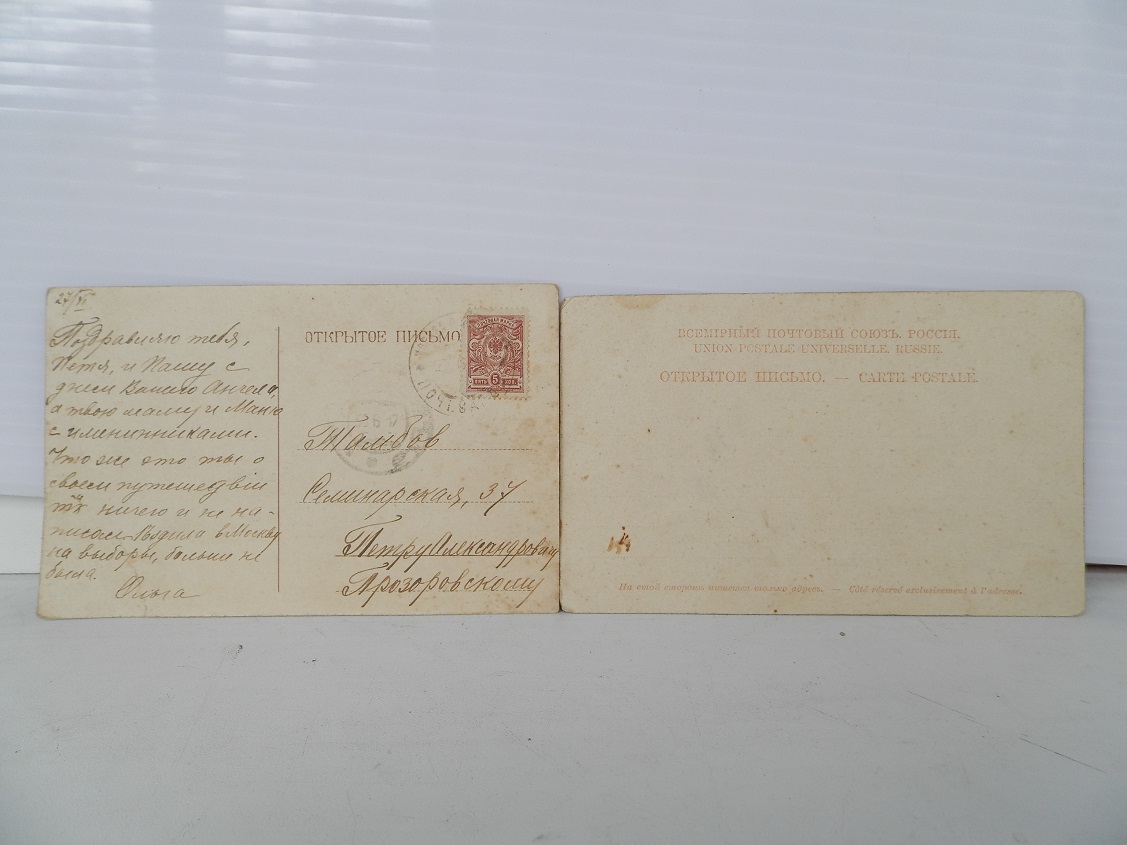 27/VI
Поздравляю тебя,
Петя, и Пашу с
днем Вашего Ангела,
а твою маму и Маню
с именинниками.
Что же это ты о
своем путешедвiи
ничего и не на-
писал. Ездила в Москву
на выборы, больше не
была.
Ольга
ОТКРЫТОЕ ПИСЬМО
ПЯТЬ 5 КОП.
Тамбов
Семинарская, 37
Петру Александровичу
Прозоровскому
ВСЕМIРНЫЙ ПОЧТОВЫЙ СОЮЗЪ. РОССIЯ.
UNION POSTALE UNIVERSELLE. RUSSIE.
ОТКРЫТОЕ ПИСЬМО. — CARTE POSTALE.
На этой сторонѣ пишется только адресъ. — Côté réservé exclusivement à l'adresse.